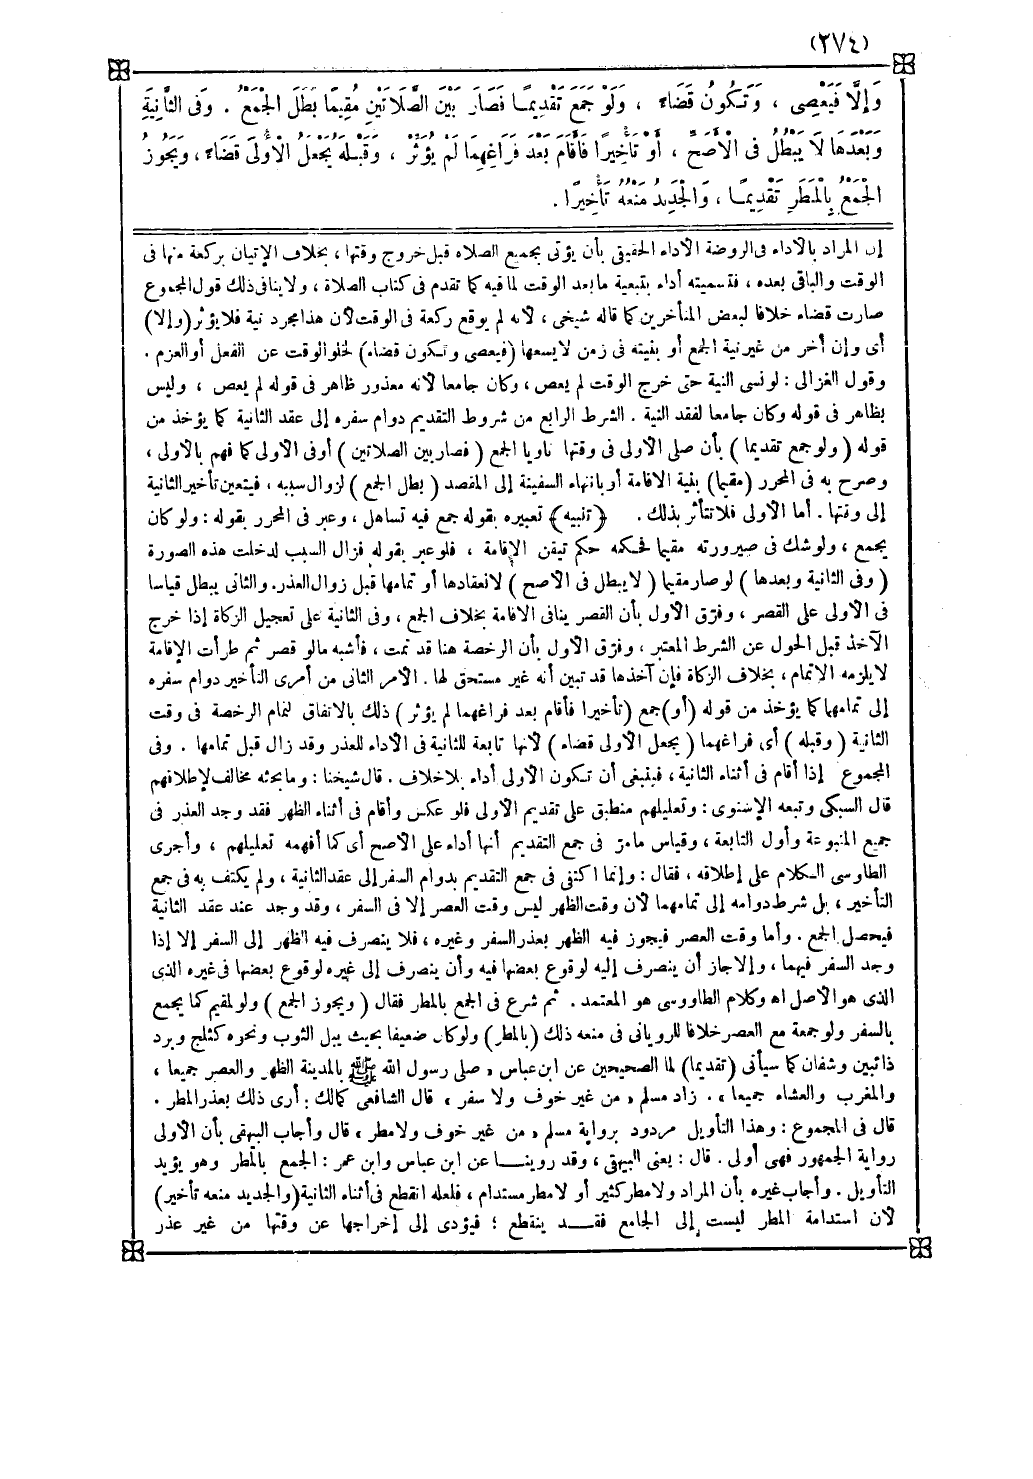 (٢٧٤)
وَإِلَّا فَيَعْصِي ، وَتَكُونُ قَضَاءً ، وَلَوْ جَمَعَ تَقْدِيمًا فَصَارَ بَيْنَ الصَّلَاتَيْنِ مُقِيمًا بَطَلَ الْجَمْعُ . وَفِى الثَّانِيَةِ
وَبَعْدَهَا لَا يَبْطُلُ فِى الْأَصَحِّ ، أَوْ تَأْخِيرًا فَأَقَامَ بَعْدَ فَرَاغِهِمَا لَمْ يُؤَثِّرْ ، وَقَبْلَهُ يَجْعَلُ الْأُولَى قَضَاءً ، وَيَجُوزُ
الْجَمْعُ بِالْمَطَرِ تَقْدِيمًا ، وَالْجَدِيدُ مَنْعُهُ تَأْخِيرًا .
إن المراد بالأداء فى الروضة الأداء الحقيقى بأن يؤتى بجميع الصلاة قبل خروج وقتها ، بخلاف الإتيان بركعة منها فى
الوقت والباقى بعده ، فتسميته أداء بتبعية مابعد الوقت لما فيه كما تقدم فى كتاب الصلاة ، ولاينافى ذلك قول المجموع
صارت قضاء خلافا لبعض المتأخرين كما قاله شيخى ، لأنه لم يوقع ركعة فى الوقت لأن هذا مجرد نية فلا يؤثر (وإلا)
أى وإن أخر من غيرنية الجمع أو بنيته فى زمن لايسعها (فيعصى وتكون قضاء) لخلو الوقت عن الفعل أوالعزم .
وقول الغزالى : لونسى النية حتى خرج الوقت لم يعص ، وكان جامعا لأنه معذور ظاهر فى قوله لم يعص ، وليس
بظاهر فى قوله وكان جامعا لفقد النية . الشرط الرابع من شروط التقديم دوام سفره إلى عقد الثانية كما يؤخذ من
قوله (ولوجمع تقديما) بأن صلى الأولى فى وقتها ناويا الجمع (فصار بين الصلاتين) أوفى الأولى كما فهم بالأولى ،
وصرح به فى المحرر (مقيما) بنية الاقامة أو بانتهاء السفينة إلى المقصد (بطل الجمع) لزوال سببه ، فيتعين تأخير الثانية
إلى وقتها . أما الأولى فلاتتأثر بذلك . ﴿تنبيه﴾ تعبيره بقوله جمع فيه تساهل ، وعبر فى المحرر بقوله : ولوكان
يجمع ، ولوشك فى صيرورته مقيما فحكمه حكم تيقن الإقامة ، فلوعبر بقوله فزال السبب لدخلت هذه الصورة
(وفى الثانية وبعدها) لوصار مقيما (لايبطل فى الأصح) لانعقادها أو تمامها قبل زوال العذر . والثانى يبطل قياسا
فى الأولى على القصر ، وفرّق الأول بأن القصر ينافى الاقامة بخلاف الجمع ، وفى الثانية على تعجيل الزكاة إذا خرج
الآخذ قبل الحول عن الشرط المعتبر ، وفرّق الأول بأن الرخصة هنا قد تمت ، فأشبه مالو قصر ثم طرأت الإقامة
لايلزمه الاتمام ، بخلاف الزكاة فإن آخذها قد تبين أنه غير مستحق لها . الأمر الثانى من أمرى التأخير دوام سفره
إلى تمامهما كما يؤخذ من قوله (أو) جمع (تأخيرا فأقام بعد فراغهما لم يؤثر) ذلك بالاتفاق لتمام الرخصة فى وقت
الثانية (وقبله) أى فراغهما (يجعل الأولى قضاء) لأنها تابعة للثانية فى الأداء للعذر وقد زال قبل تمامها . وفى
المجموع إذا أقام فى أثناء الثانية ، فينبغى أن تكون الأولى أداء بلاخلاف . قال شيخنا : ومابحثه مخالف لإطلاقهم
قال السبكى وتبعه الإسنوى : وتعليلهم منطبق على تقديم الأولى فلو عكس وأقام فى أثناء الظهر فقد وجد العذر فى
جميع المتبوعة وأول التابعة ، وقياس مامرّ فى جمع التقديم أنها أداء على الأصح أى كما أفهمه تعليلهم ، وأجرى
الطاوسى الكلام على إطلاقه ، فقال : وإنما اكتفى فى جمع التقديم بدوام السفر إلى عقد الثانية ، ولم يكتف به فى جمع
التأخير ، بل شرط دوامه إلى تمامهما لأن وقت الظهر ليس وقت العصر إلا فى السفر ، وقد وجد عند عقد الثانية
فيحصل الجمع . وأما وقت العصر فيجوز فيه الظهر بعذر السفر وغيره ، فلا ينصرف فيه الظهر إلى السفر إلا إذا
وجد السفر فيهما ، وإلاجاز أن ينصرف إليه لوقوع بعضها فيه وأن ينصرف إلى غيره لوقوع بعضها فى غيره الذى
الذى هو الأصل اه وكلام الطاووسى هو المعتمد . ثم شرع فى الجمع بالمطر فقال (ويجوز الجمع) ولو لمقيم كما يجمع
بالسفر ولو جمعة مع العصر خلافا للرويانى فى منعه ذلك (بالمطر) ولوكان ضعيفا بحيث يبل الثوب ونحوه كثلج وبرد
ذائبين وشفان كما سيأتى (تقديما) لما الصحيحين عن ابن عباس « صلى رسول الله ﷺ بالمدينة الظهر والعصر جميعا ،
والمغرب والعشاء جميعا » . زاد مسلم « من غير خوف ولا سفر » قال الشافعى كمالك : أرى ذلك بعذر المطر .
قال فى المجموع : وهذا التأويل مردود برواية مسلم « من غير خوف ولامطر » قال وأجاب البيهقى بأن الأولى
رواية الجمهور فهى أولى . قال : يعنى البيهقى ، وقد روينا عن ابن عباس وابن عمر : الجمع بالمطر وهو يؤيد
التأويل . وأجاب غيره بأن المراد ولامطر كثير أو لامطر مستدام ، فلعله انقطع فى أثناء الثانية (والجديد منعه تأخير)
لأن استدامة المطر ليست إلى الجامع فقد ينقطع ؛ فيؤدى إلى إخراجها عن وقتها من غير عذر